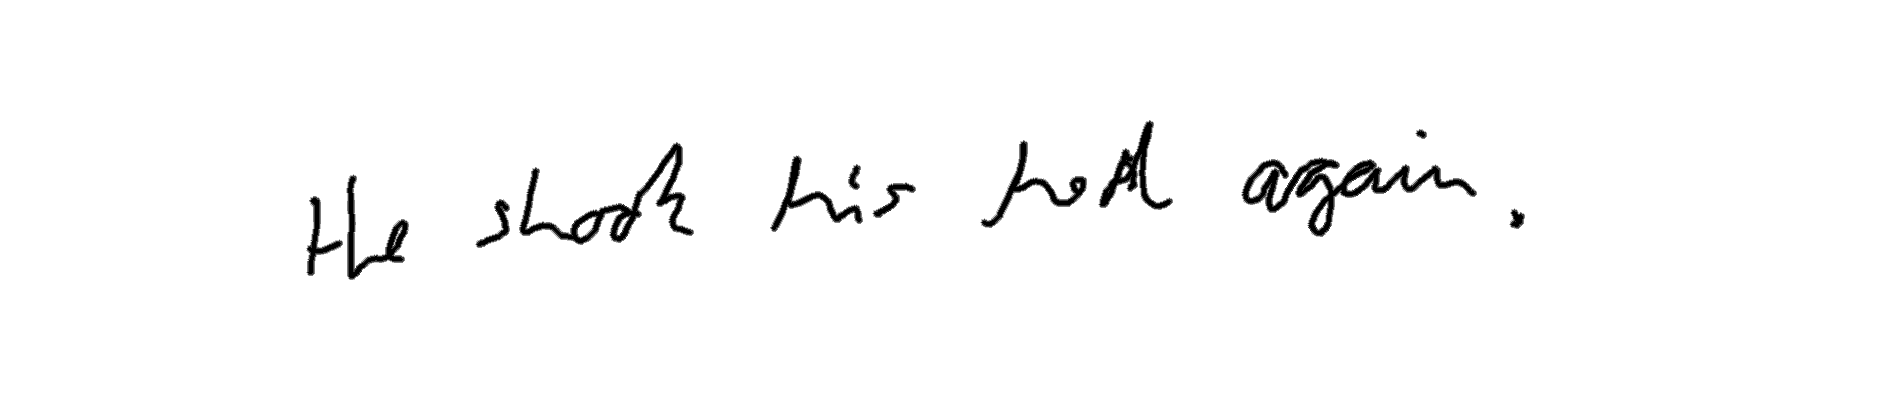 He shook his head again.